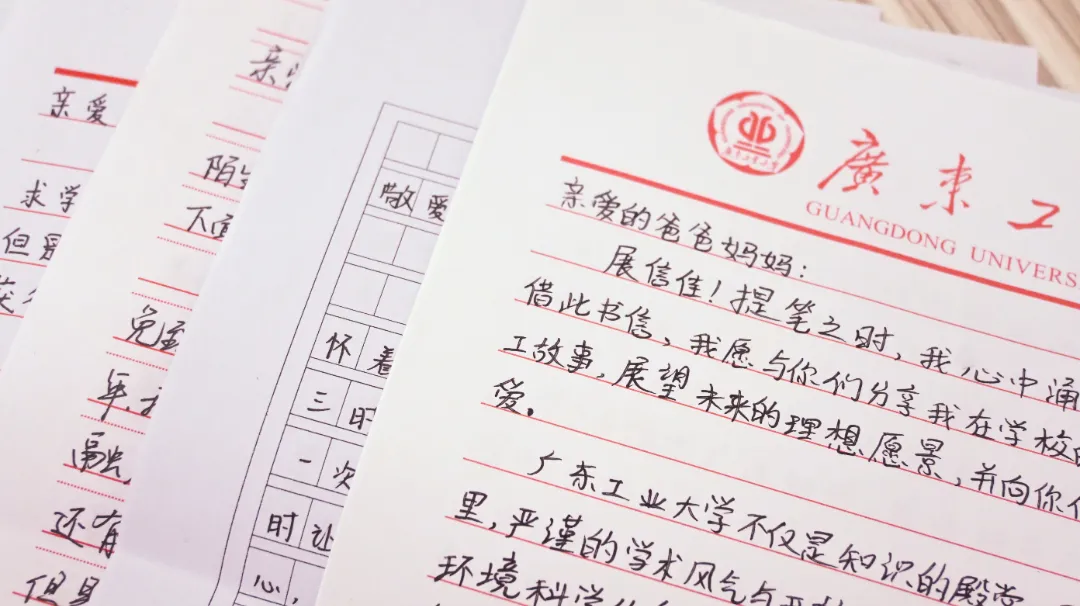 亲爱
求学
但
亲
陌
下面
免
年
融
还有
但是
敬爱
怀着
三时
一次
时让
心,
廣東工
GUANGDONG UNIVERS
亲爱的爸爸妈妈:
展信佳!提笔之时,我心中涌
借此书信,我愿与你们分享我在学校的
工故事,展望未来的理想愿景,并向你们
爱。
广东工业大学不仅是知识的殿堂
里,严谨的学术风气与
环境科学